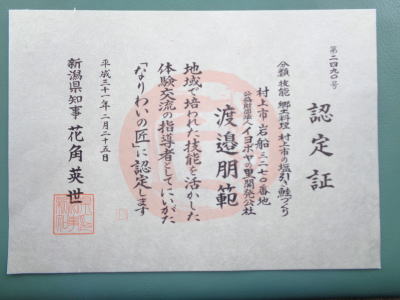 第二四九〇号
認定証
分類 技能 郷土料理 村上市の塩引き鮭づくり
村上市岩船三二七〇番地
公益財団法人イヨボヤの里開発公社
渡邉朋範
地域で培われた技能を活かした
体験交流の指導者としてにいがた
「なりわいの匠」に認定します
平成三十一年二月二十五日
新潟県知事 花角英世